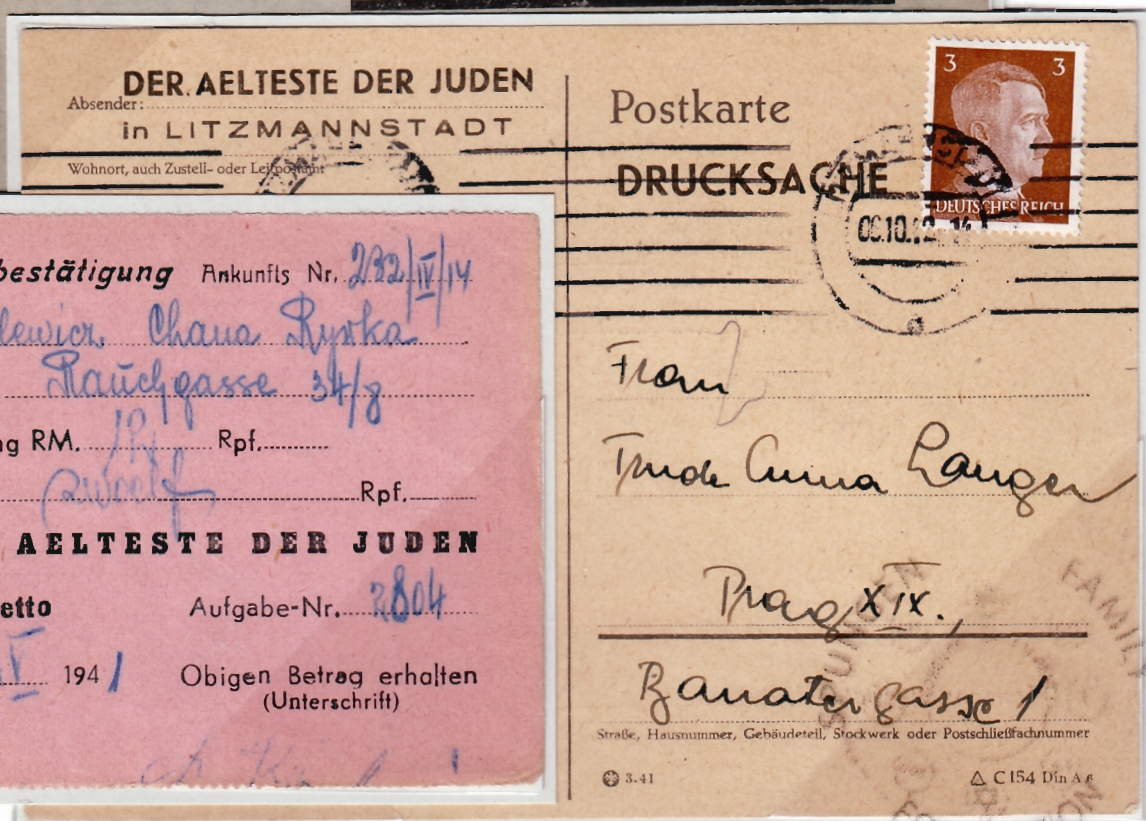 DER AELTESTE DER JUDEN
Absender:
in LITZMANNSTADT
Wohnort, auch Zustell- oder Leitpostamt
Postkarte
DRUCKSACHE
3 3
DEUTSCHES REICH
06.10.42
a
Frau
Trude Anna Langer
Prag XIX.,
Banater gasse 1
Straße, Hausnummer, Gebäudeteil, Stockwerk oder Postschließfachnummer
3.41
C 154 Din A 6
bestätigung Ankunfts Nr. 232/IV/14
lewicz Chana Rywka
Rauchgasse 34/8
ng RM. 12 Rpf.
zwoelf Rpf.
AELTESTE DER JUDEN
etto Aufgabe-Nr. 2804
V 1941 Obigen Betrag erhalten
(Unterschrift)
FAMILY